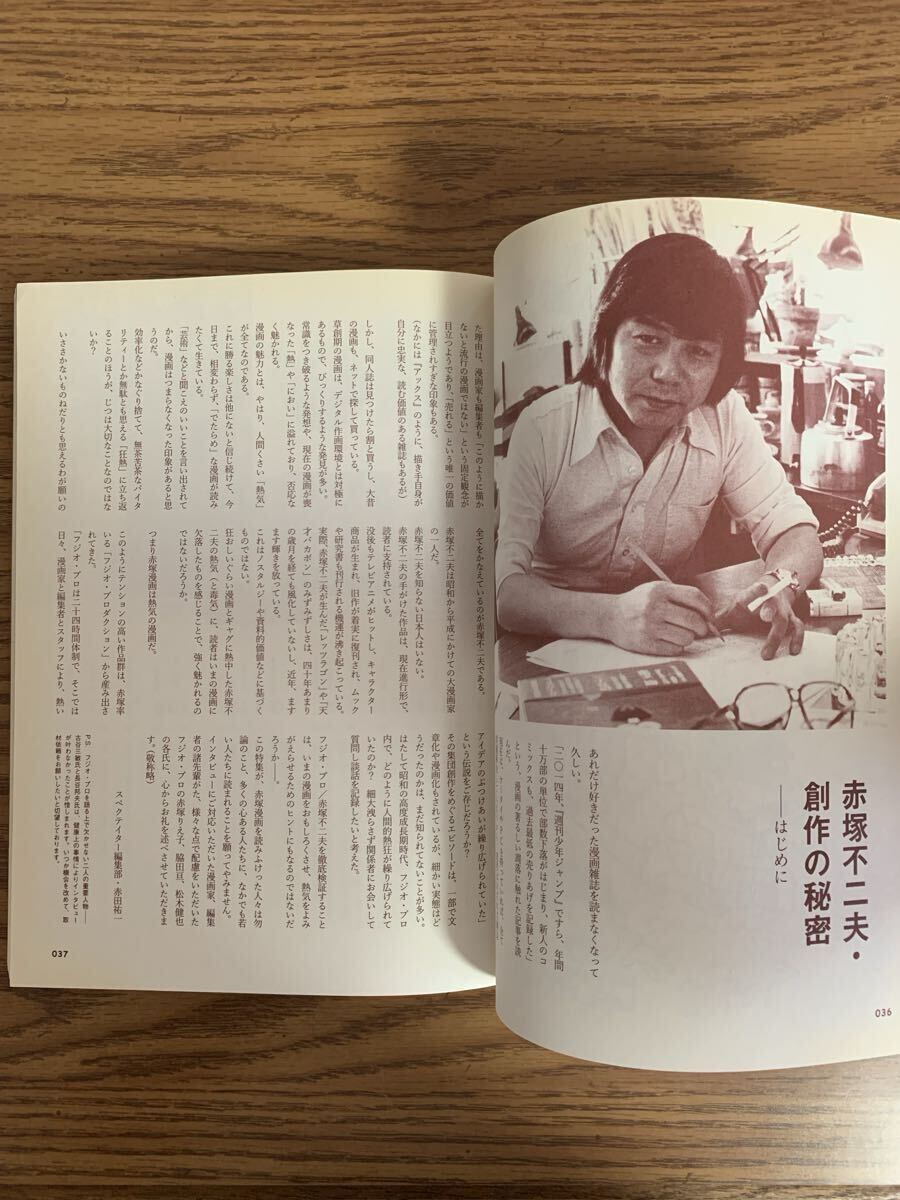 赤塚不二夫・
創作の秘密
――はじめに
あれだけ好きだった漫画雑誌を読まなくなって
久しい。
「二〇一四年、『週刊少年ジャンプ』ですら、年間
十万部の単位で部数下落がはじまり、新人のコ
ミックスも、過去最低の売りあげを記録した」
という、漫画の著るしい凋落に触れた記事を読
んだ。
036
た理由は、漫画家も編集者も「このように描か
ないと流行の漫画ではない」という固定観念が
目立つようであり、「売れる」という唯一の価値
に管理されすぎな印象もある。
(なかには『アックス』のように、描き手自身が
自分に忠実な、読む価値のある雑誌もあるが)
しかし、同人誌は見つけたら割と買うし、大昔
の漫画も、ネットで探して買っている。
草創期の漫画は、デジタル作画環境とは対極に
あるもので、びっくりするような発見が多い。
常識をつき破るような発想や、現在の漫画が喪
なった「熱」や「におい」に溢れており、否応な
く魅かれる。
漫画の魅力とは、やはり、人間くさい「熱気」
が全てなのである。
これに勝る楽しさは他にないと信じ続けて、今
日まで、相変わらず、「でたらめ」な漫画が読み
たくて生きている。
「芸術」などと聞こえのいいことを言い出されて
から、漫画はつまらなくなった印象があると思
うのだ。
効率化などかなぐり捨てて、無茶苦茶なバイタ
リティーとか無駄とも思える「狂熱」に立ち返
ることのほうが、じつは大切なことなのではな
いか?
いささかないものねだりとも思えるわが願いの
全てをかなえているのが赤塚不二夫である。
赤塚不二夫は昭和から平成にかけての大漫画家
の一人だ。
赤塚不二夫を知らない日本人はいない。
赤塚不二夫の手がけた作品は、現在進行形で、
読者に支持されている。
没後もテレビアニメがヒットし、キャラクター
商品が生まれ、旧作が着実に復刊され、ムック
や研究書も刊行される機運が沸き起こっている。
実際、赤塚不二夫が生んだ『レッツラゴン』や『天
才バカボン』のみずみずしさは、四十年あまり
の歳月を経ても風化していないし、近年、ます
ます輝きを放っている。
これはノスタルジーや資料的価値などに基づく
ものではない。
狂おしいぐらい漫画とギャグに熱中した赤塚不
二夫の熱気(と毒気)に、読者はいまの漫画に
欠落したものを感じることで、強く魅かれるの
ではないだろうか。
つまり赤塚漫画は熱気の漫画だ。
このようにテンションの高い作品群は、赤塚率
いる「フジオ・プロダクション」から産み出さ
れてきた。
「フジオ・プロは二十四時間体制で、そこでは
日々、漫画家と編集者とスタッフにより、熱い
アイデアのぶつけあいが繰り広げられていた」
という伝説をご存じだろうか?
その集団創作をめぐるエピソードは、一部で文
章化や漫画化もされているが、細かい実態はど
うだったのかは、まだ知られてないことが多い。
はたして昭和の高度成長期時代、フジオ・プロ
内で、どのように人間的熱狂が繰り広げられて
いたのか? 細大洩らさず関係者にお会いして
質問し談話を記録したいと考えた。
フジオ・プロ/赤塚不二夫を徹底検証すること
は、いまの漫画をおもしろくさせ、熱気をよみ
がえらせるためのヒントにもなるのではないだ
ろうか――。
この特集が、赤塚漫画を読みふけった人々は勿
論のこと、多くの心ある人たちに、なかでも若
い人たちに読まれることを願ってやみません。
インタビューにご対応いただいた漫画家、編集
者の諸先輩がた、様々な点で配慮をいただいた
フジオ・プロの赤塚りえ子、脇田亘、松木健也
の各氏に、心からお礼を述べさせていただきま
す。(敬称略)
スペクテイター編集部・赤田祐一
P.S. フジオ・プロを語る上で欠かせない二人の重要人物――
古谷三敏氏と長谷邦夫氏は、健康上の事情によりインタビュー
が叶わなかったことが惜しまれます。いつか機会を改めて、取
材依頼をお願いしたいと切望しております。
037